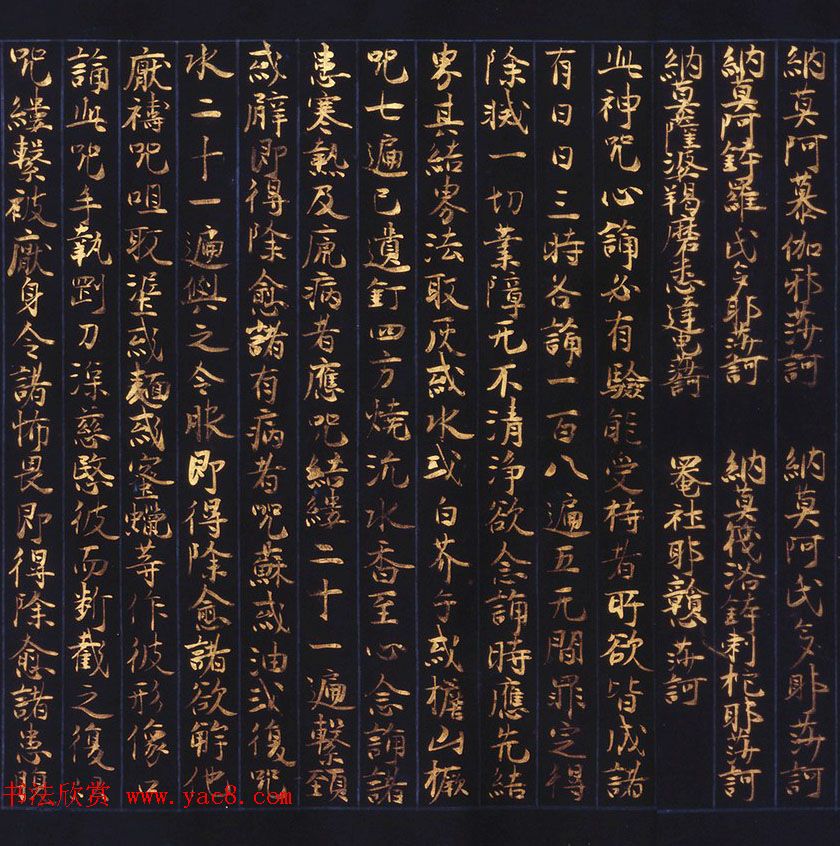 納莫阿慕伽耶莎訶 納莫阿氏多耶莎訶
納莫阿鉢羅氏多耶莎訶 納莫筏洛鉢剌柁耶莎訶
納莫薩婆羯磨悉達也莎訶 罨社耶戇莎訶
此神咒心誦必有驗能受持者所欲皆成諸
有日日三時各誦一百八遍五无間罪定得
除滅一切業障无不清淨欲念誦時應先結
界其結界法取灰或水或白芥子或檐山橛
咒七遍已遺釘四方燒沉水香至心念誦諸
患寒熱及鬼病者應咒結縷二十一遍繫頸
或臂即得除愈諸有病者咒蘇或油或復咒
水二十一遍與之令服即得除愈諸欲解他
厭禱咒咀取埿或麵或蜜蠟等作彼形像口
誦此咒手執剛刀深慈愍彼而斷截之復
咒縷繫被厭身令諸怖畏即得除愈諸患
书法欣赏 www.yac8.com